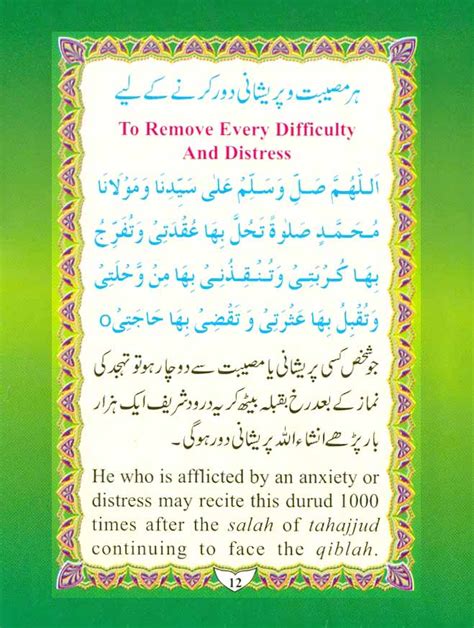 ہر مصیبت و پریشانی دور کرنے کے لیے
To Remove Every Difficulty
And Distress
اَللّٰهُمَّ صَلِّ وَسَلِّمْ عَلٰى سَيِّدِنَا وَمَوْلَانَا
مُحَمَّدٍ صَلٰوةً تَحُلُّ بِهَا عُقْدَتِىْ وَتُفَرِّجُ
بِهَا كُرْبَتِىْ وَتُنْقِذُنِىْ بِهَا مِنْ وَّحْلَتِىْ
وَتُقِيْلُ بِهَا عَثْرَتِىْ وَتَقْضِىْ بِهَا حَاجَتِىْ o
جو شخص کسی پریشانی یا مصیبت سے دوچار ہو تو تہجد کی
نماز کے بعد رخ بقبلہ بیٹھ کر یہ درود شریف ایک ہزار
بار پڑھے انشاء اللہ پریشانی دور ہوگی۔
He who is afflicted by an anxiety or
distress may recite this durud 1000
times after the salah of tahajjud
continuing to face the qiblah.
12